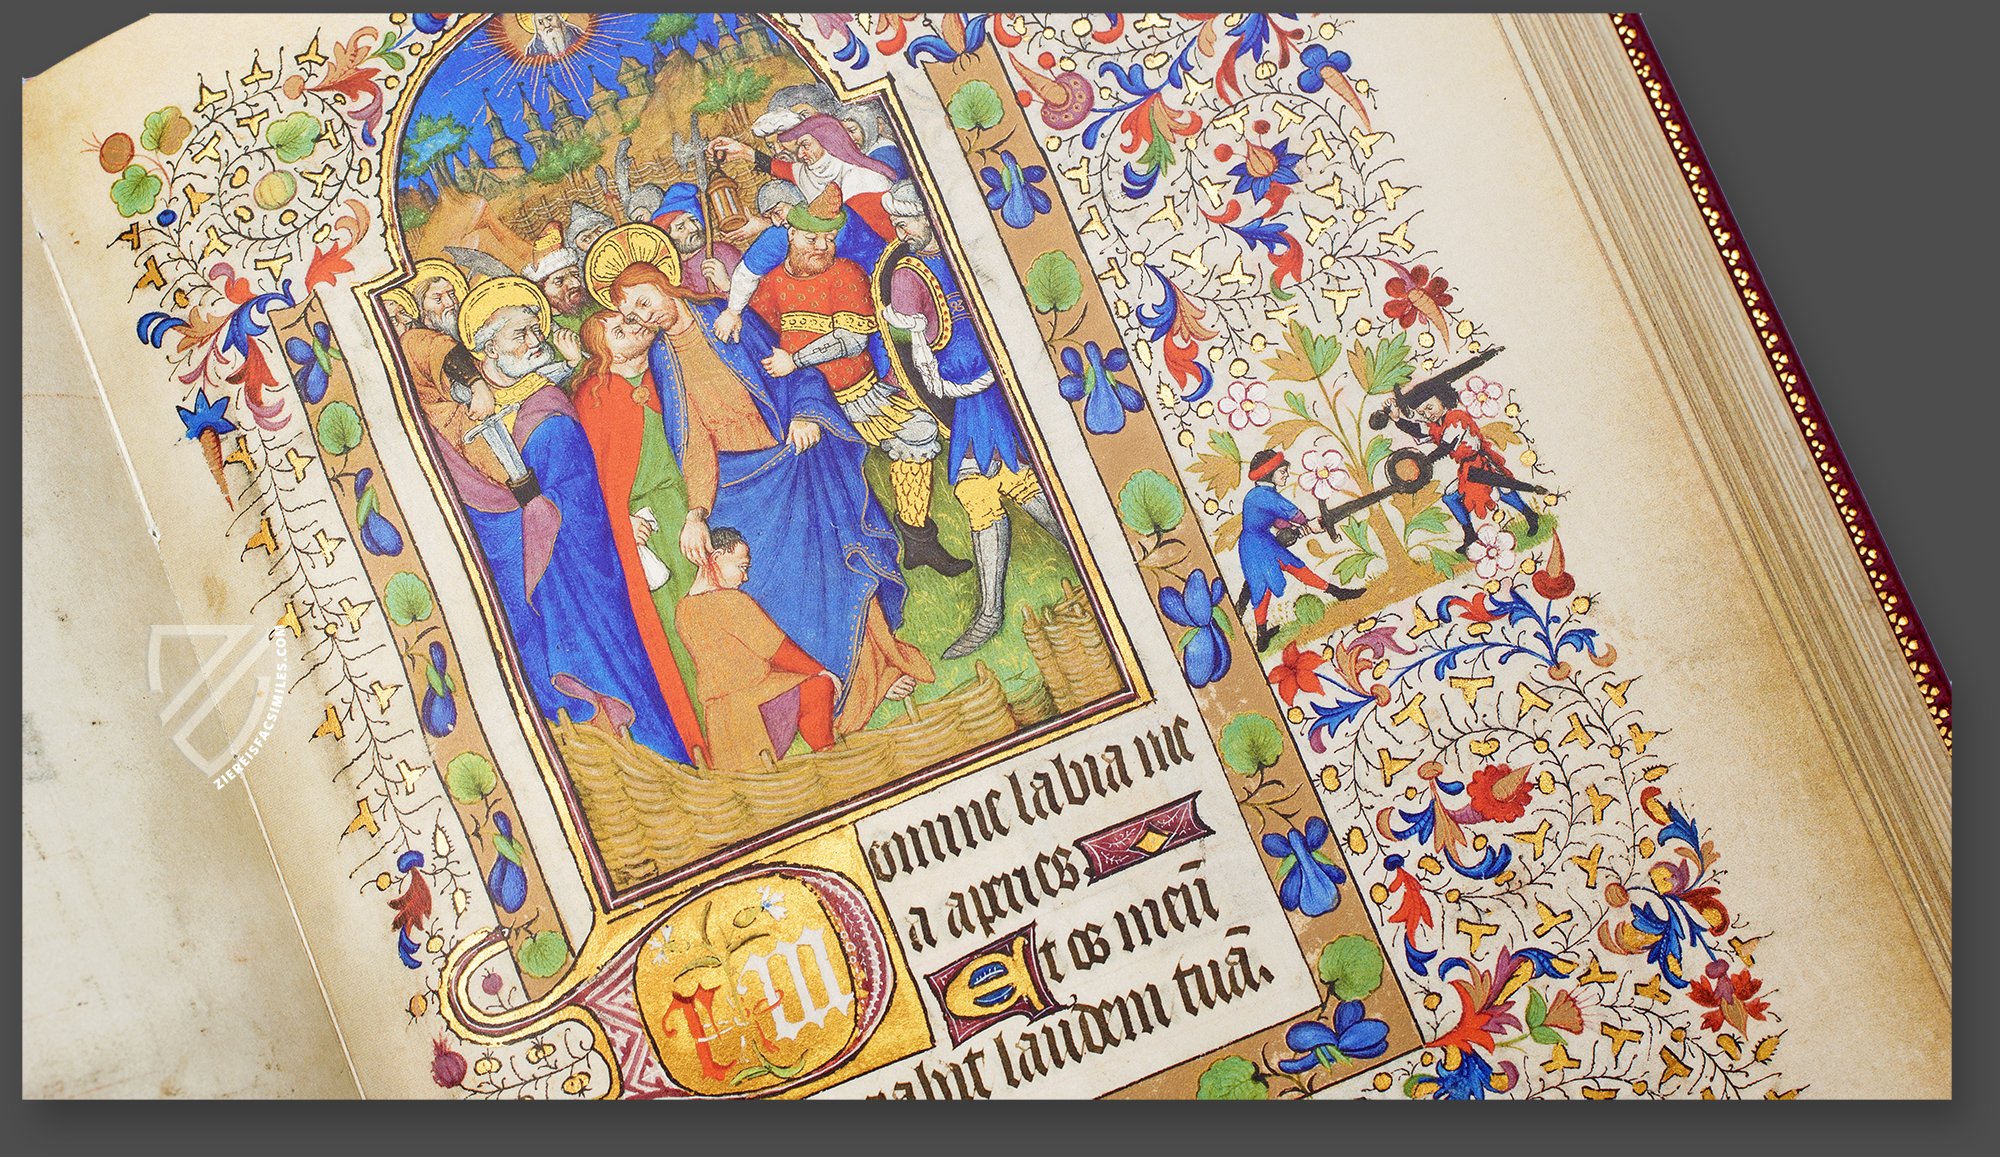 Domine labia me
a apries
Et os meū
nabit laudem tuā.
ZIEREISFACSIMILES.COM